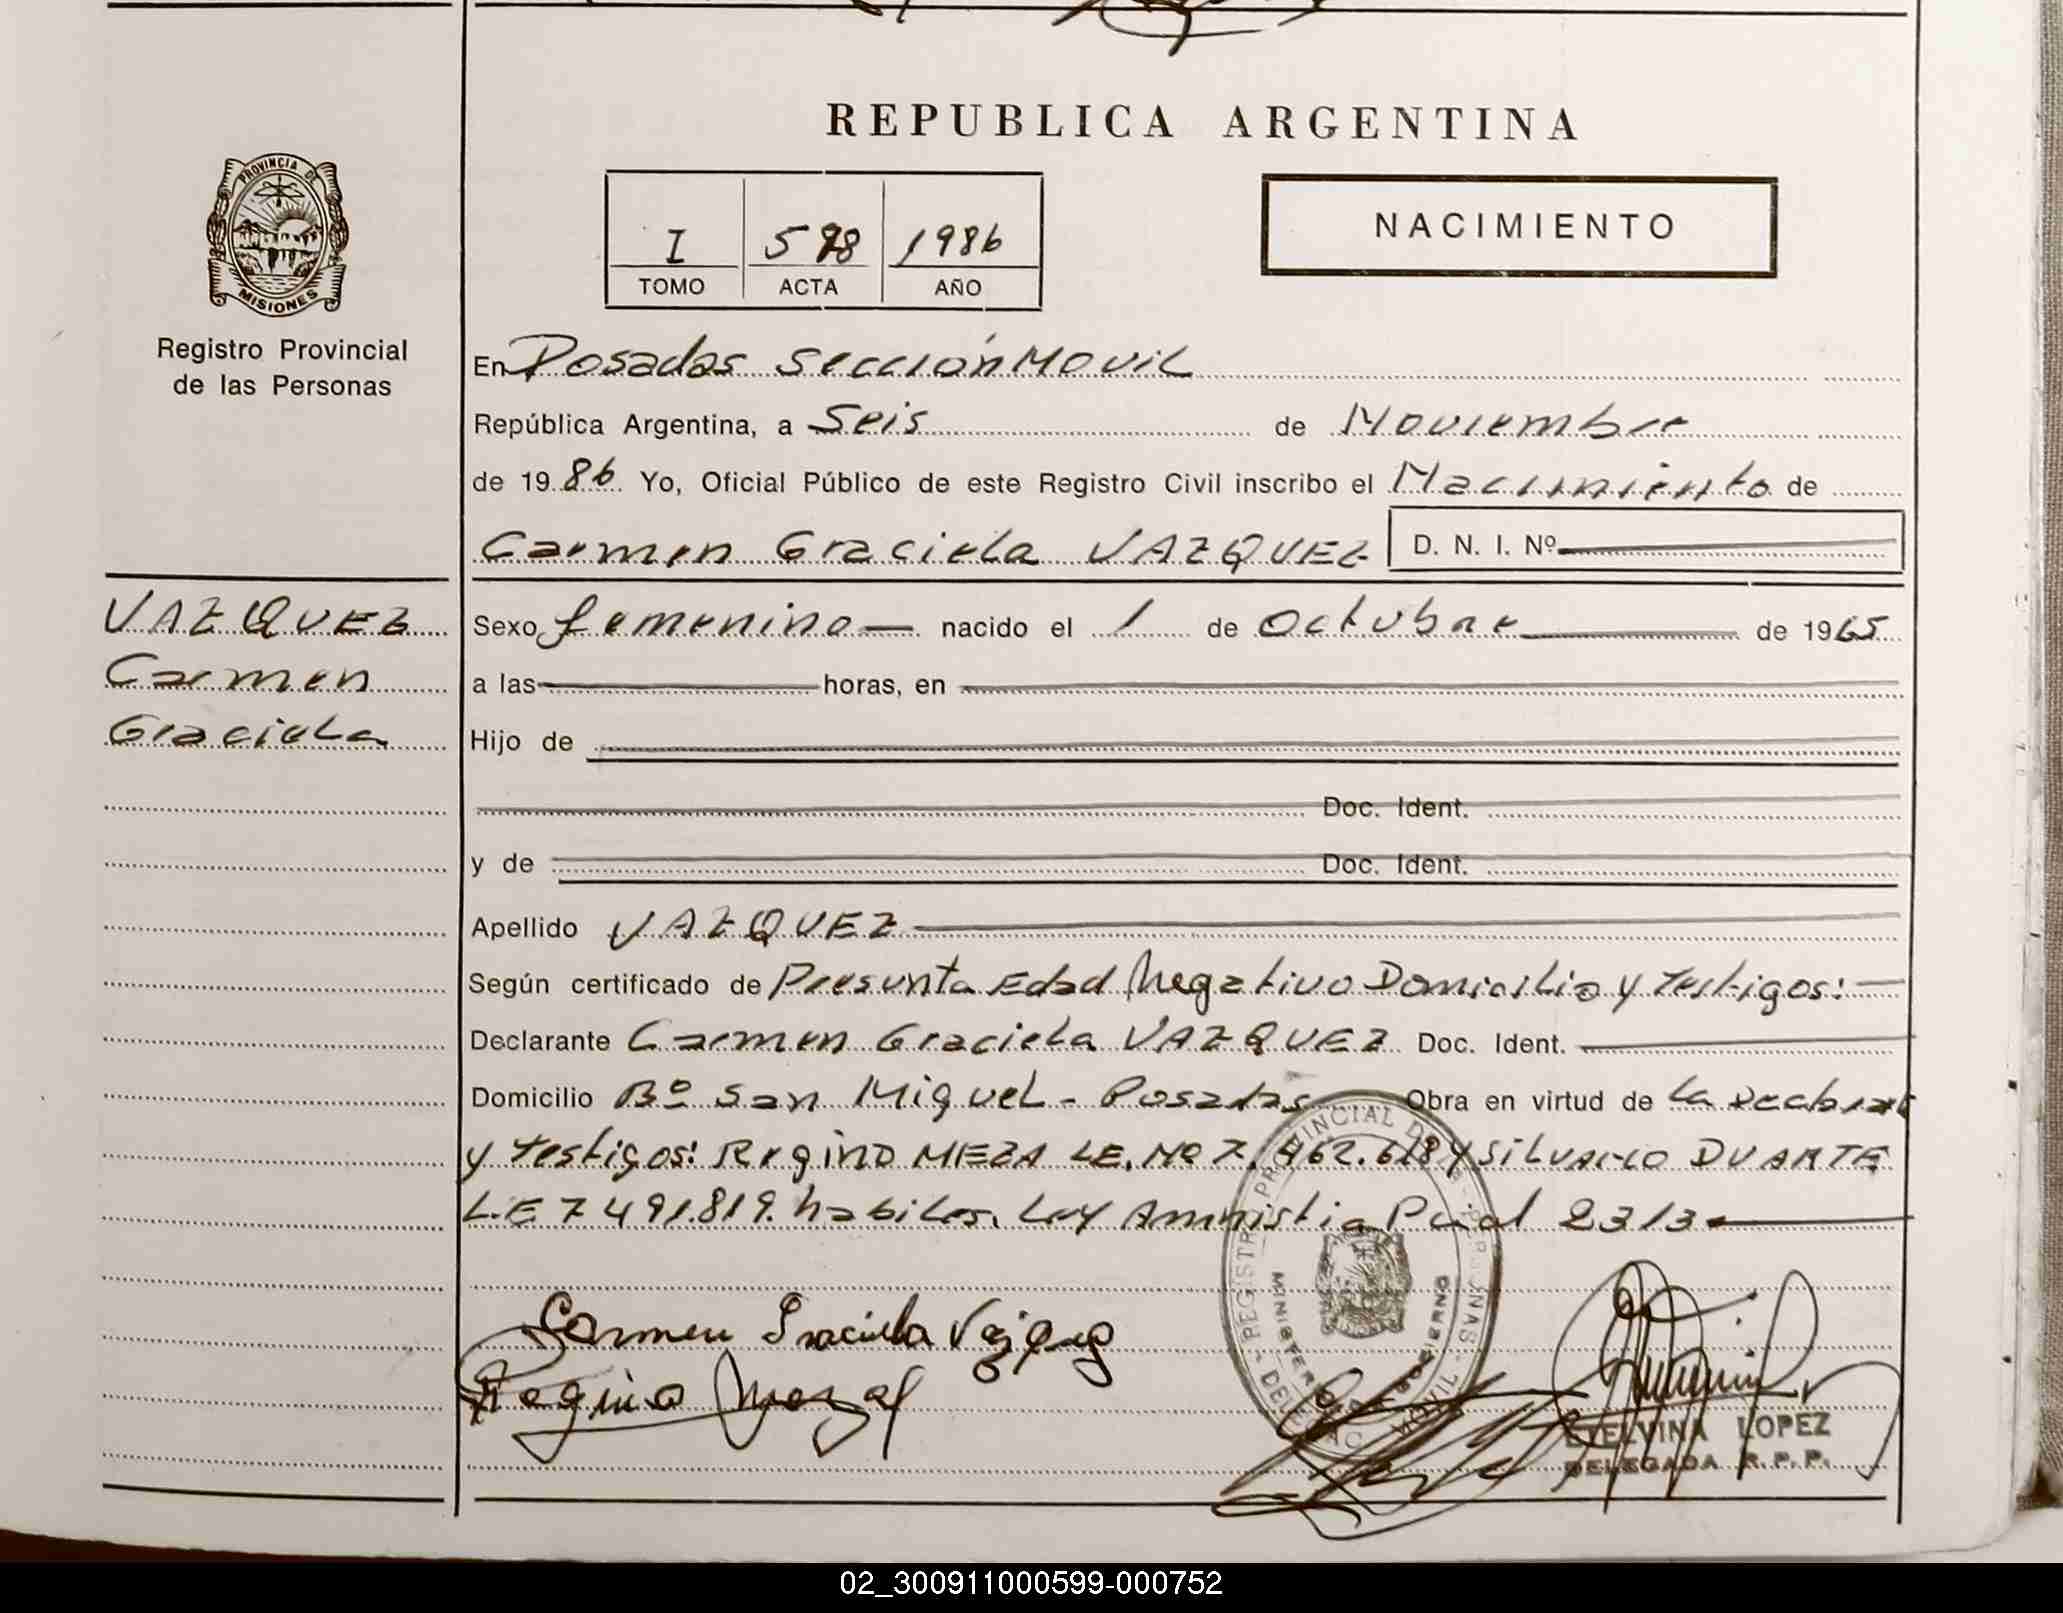 REPUBLICA ARGENTINA
PROVINCIA DE
MISIONES
Registro Provincial
de las Personas
I 598 1986
TOMO ACTA AÑO
NACIMIENTO
En Posadas Sección Movil
República Argentina, a Seis de Noviembre
de 1986 Yo, Oficial Público de este Registro Civil inscribo el Nacimiento de
Carmen Graciela VAZQUEZ D. N. I. Nº
VAZQUEZ
Carmen
Graciela
Sexo femenino nacido el 1 de Octubre de 1965
a las horas, en
Hijo de
Doc. Ident.
y de Doc. Ident.
Apellido VAZQUEZ
Según certificado de Presunta Edad Negativo Domicilio y testigos:
Declarante Carmen Graciela VAZQUEZ Doc. Ident.
Domicilio Bº San Miguel - Posadas Obra en virtud de la
y testigos: Regino MEZA LE. Nº 7. 62.618 y DUARTE
L.E 7 491.819. habiles. Ley Amnistia 2313
Carmen Graciela Vazquez
Regino Meza
REGISTRO PROVINCIAL DE LAS PERSONAS
MINISTERIO DE GOBIERNO
MOVIL
ETELVINA LOPEZ
DELEGADA R. P. P.
02_300911000599-000752